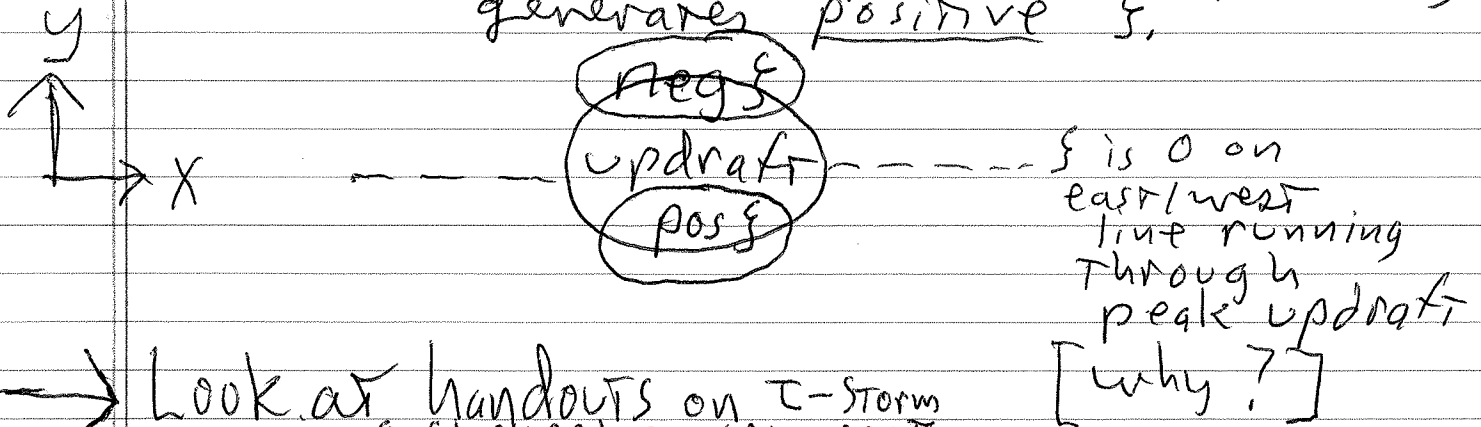 generates positive ξ.
y
neg ξ
updraft
x
pos ξ
ξ is 0 on
east/west
line running
through
peak updraft
[why?]
→ Look at handouts on T-storm